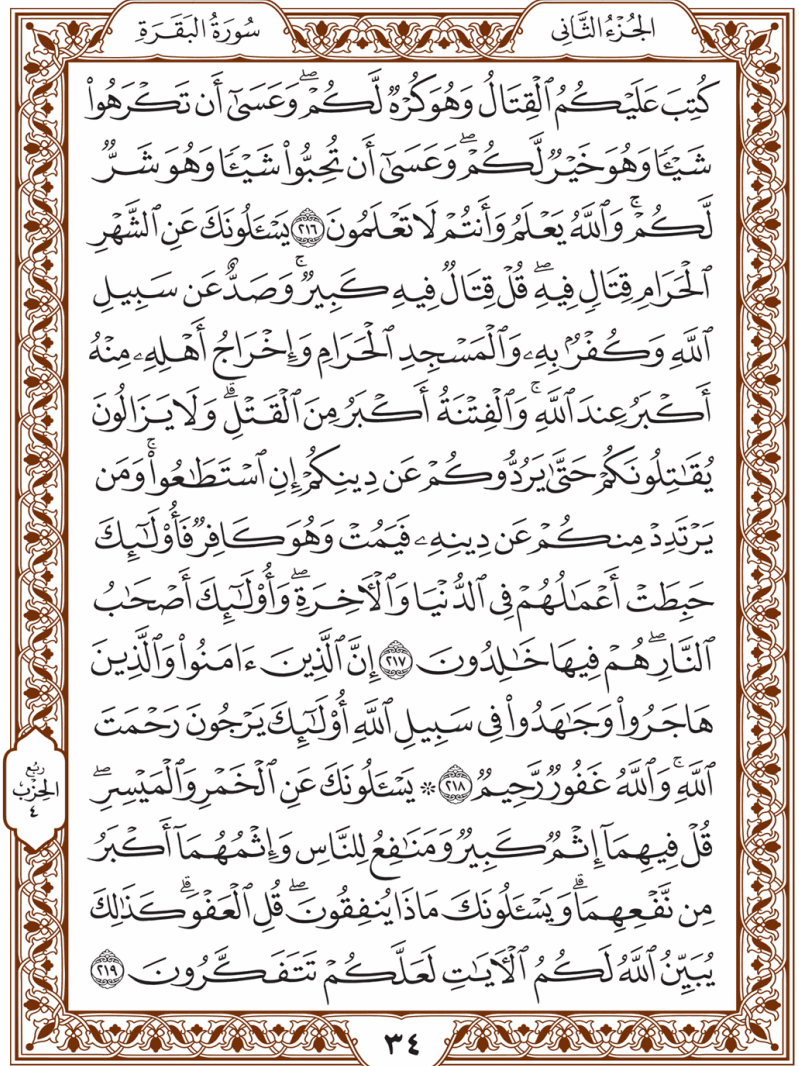 سُورَةُ البَقَرَةِ
الجُزْءُ الثَّانِي
كُتِبَ عَلَيْكُمُ ٱلْقِتَالُ وَهُوَ كُرْهٌ لَّكُمْ ۖ وَعَسَىٰٓ أَن تَكْرَهُوا۟
شَيْـًٔا وَهُوَ خَيْرٌ لَّكُمْ ۖ وَعَسَىٰٓ أَن تُحِبُّوا۟ شَيْـًٔا وَهُوَ شَرٌّ
لَّكُمْ ۚ وَٱللَّهُ يَعْلَمُ وَأَنتُمْ لَا تَعْلَمُونَ ٢١٦ يَسْـَٔلُونَكَ عَنِ ٱلشَّهْرِ
ٱلْحَرَامِ قِتَالٍ فِيهِ ۖ قُلْ قِتَالٌ فِيهِ كَبِيرٌ ۚ وَصَدٌّ عَن سَبِيلِ
ٱللَّهِ وَكُفْرٌۢ بِهِۦ وَٱلْمَسْجِدِ ٱلْحَرَامِ وَإِخْرَاجُ أَهْلِهِۦ مِنْهُ
أَكْبَرُ عِندَ ٱللَّهِ ۚ وَٱلْفِتْنَةُ أَكْبَرُ مِنَ ٱلْقَتْلِ ۗ وَلَا يَزَالُونَ
يُقَـٰتِلُونَكُمْ حَتَّىٰ يَرُدُّوكُمْ عَن دِينِكُمْ إِنِ ٱسْتَطَـٰعُوا۟ ۚ وَمَن
يَرْتَدِدْ مِنكُمْ عَن دِينِهِۦ فَيَمُتْ وَهُوَ كَافِرٌ فَأُو۟لَـٰٓئِكَ
حَبِطَتْ أَعْمَـٰلُهُمْ فِى ٱلدُّنْيَا وَٱلْـَٔاخِرَةِ ۖ وَأُو۟لَـٰٓئِكَ أَصْحَـٰبُ
ٱلنَّارِ ۖ هُمْ فِيهَا خَـٰلِدُونَ ٢١٧ إِنَّ ٱلَّذِينَ ءَامَنُوا۟ وَٱلَّذِينَ
هَاجَرُوا۟ وَجَـٰهَدُوا۟ فِى سَبِيلِ ٱللَّهِ أُو۟لَـٰٓئِكَ يَرْجُونَ رَحْمَتَ
ٱللَّهِ ۚ وَٱللَّهُ غَفُورٌ رَّحِيمٌ ٢١٨ ۞ يَسْـَٔلُونَكَ عَنِ ٱلْخَمْرِ وَٱلْمَيْسِرِ ۖ
قُلْ فِيهِمَآ إِثْمٌ كَبِيرٌ وَمَنَـٰفِعُ لِلنَّاسِ وَإِثْمُهُمَآ أَكْبَرُ
مِن نَّفْعِهِمَا ۗ وَيَسْـَٔلُونَكَ مَاذَا يُنفِقُونَ ۖ قُلِ ٱلْعَفْوَ ۗ كَذَٰلِكَ
يُبَيِّنُ ٱللَّهُ لَكُمُ ٱلْـَٔايَـٰتِ لَعَلَّكُمْ تَتَفَكَّرُونَ ٢١٩
ربع
الحِزْب
٤
٣٤